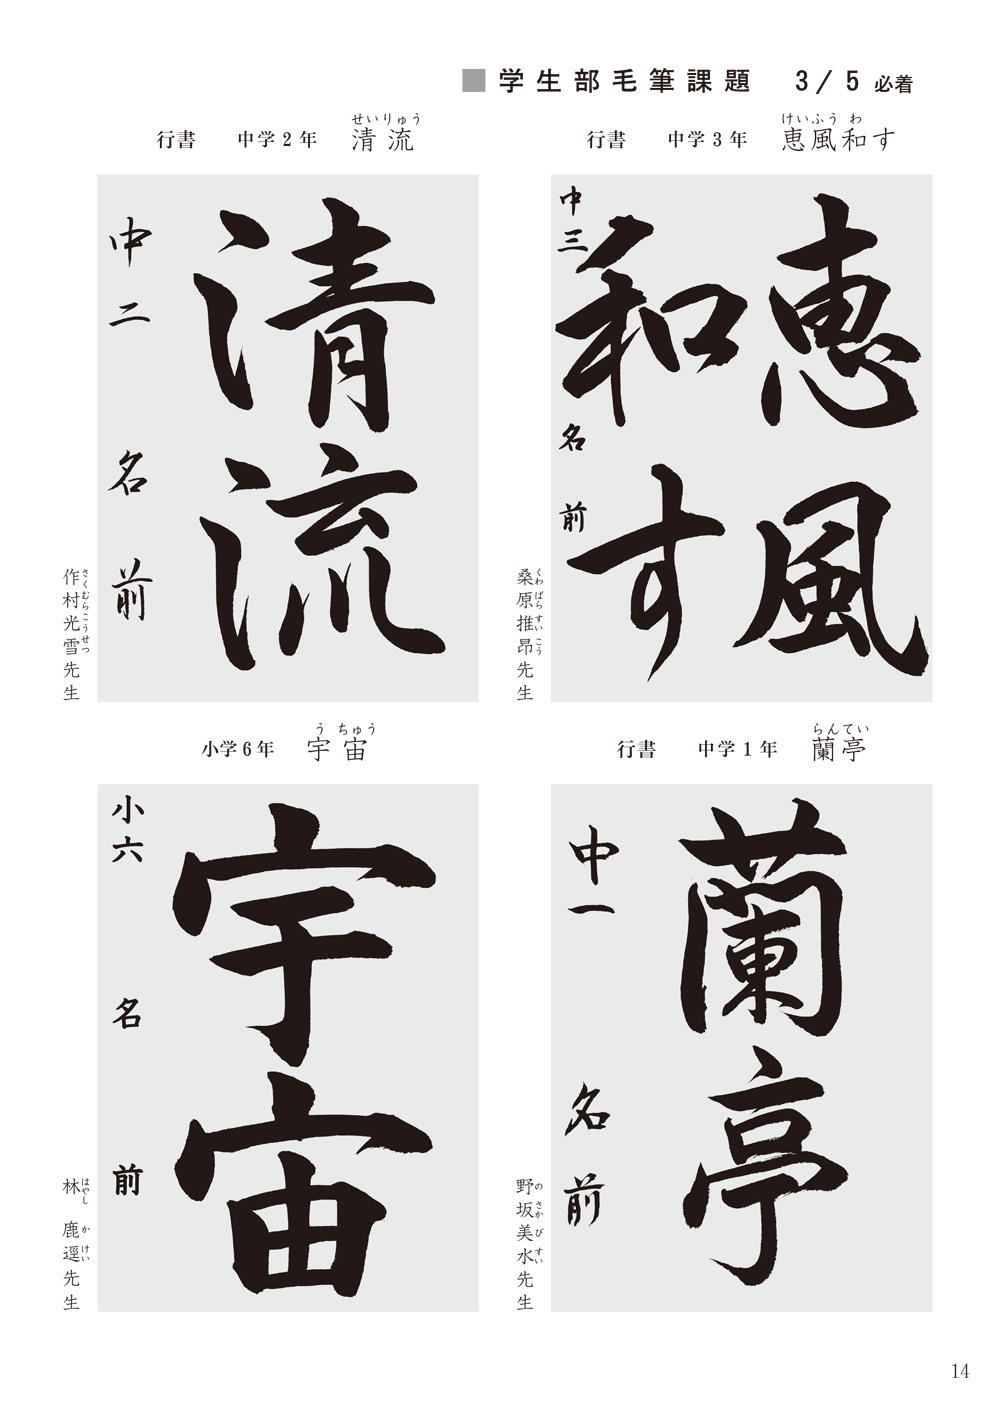 ■学生部毛筆課題 3/5 必着
行書 中学3年 恵風和す
けいふう わ
恵風
和す
中三 名前
桑原推昂先生
くわ ばら すい こう
行書 中学2年 清流
せいりゅう
清流
中二 名前
作村光雪先生
さくむらこうせつ
行書 中学1年 蘭亭
らんてい
蘭亭
中一 名前
野坂美水先生
の さか び すい
小学6年 宇宙
う ちゅう
宇宙
小六 名前
林 鹿逕先生
はやし か けい
14